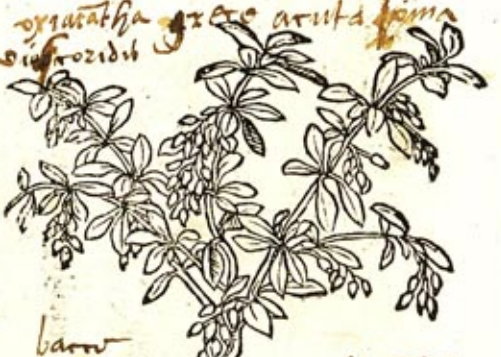 oxiacãtha grece acuta spina
Dioscoridis
bacce